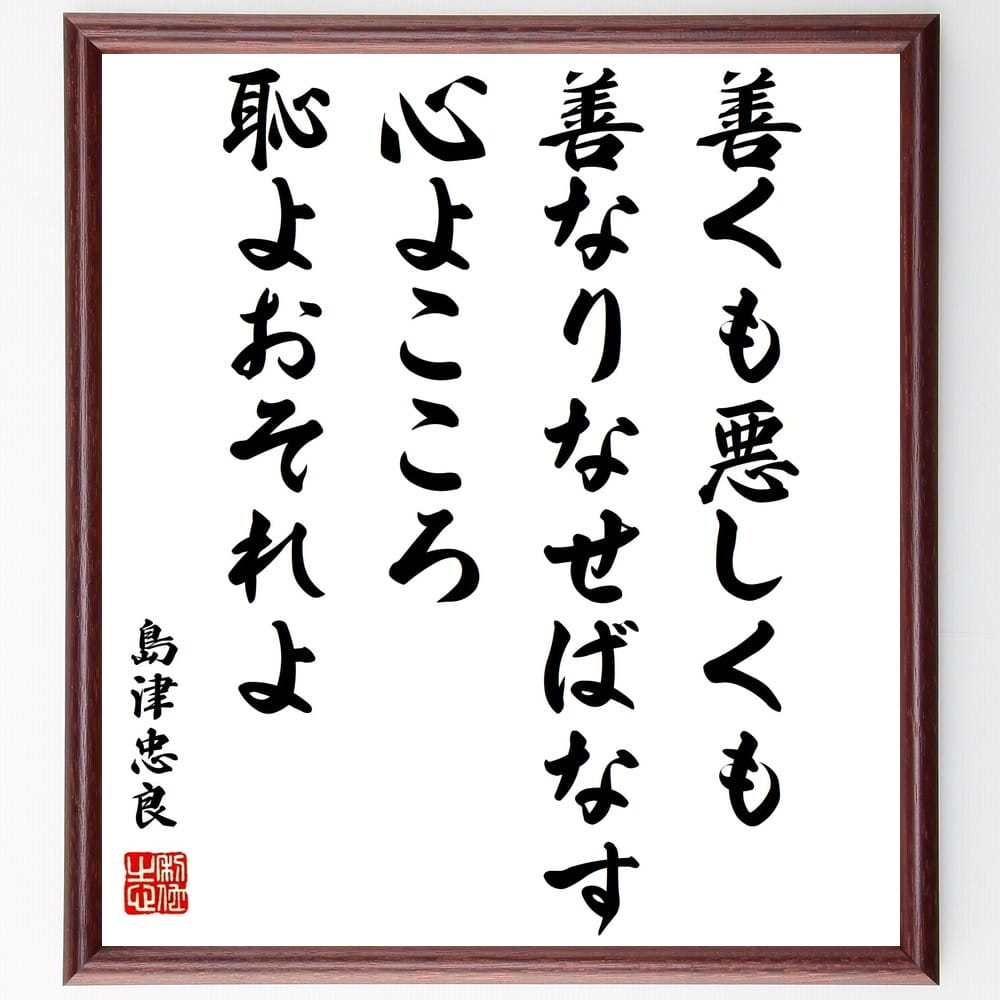 善くも悪しくも
善なりなせばなす
心よこころ
恥よおそれよ
島津忠良